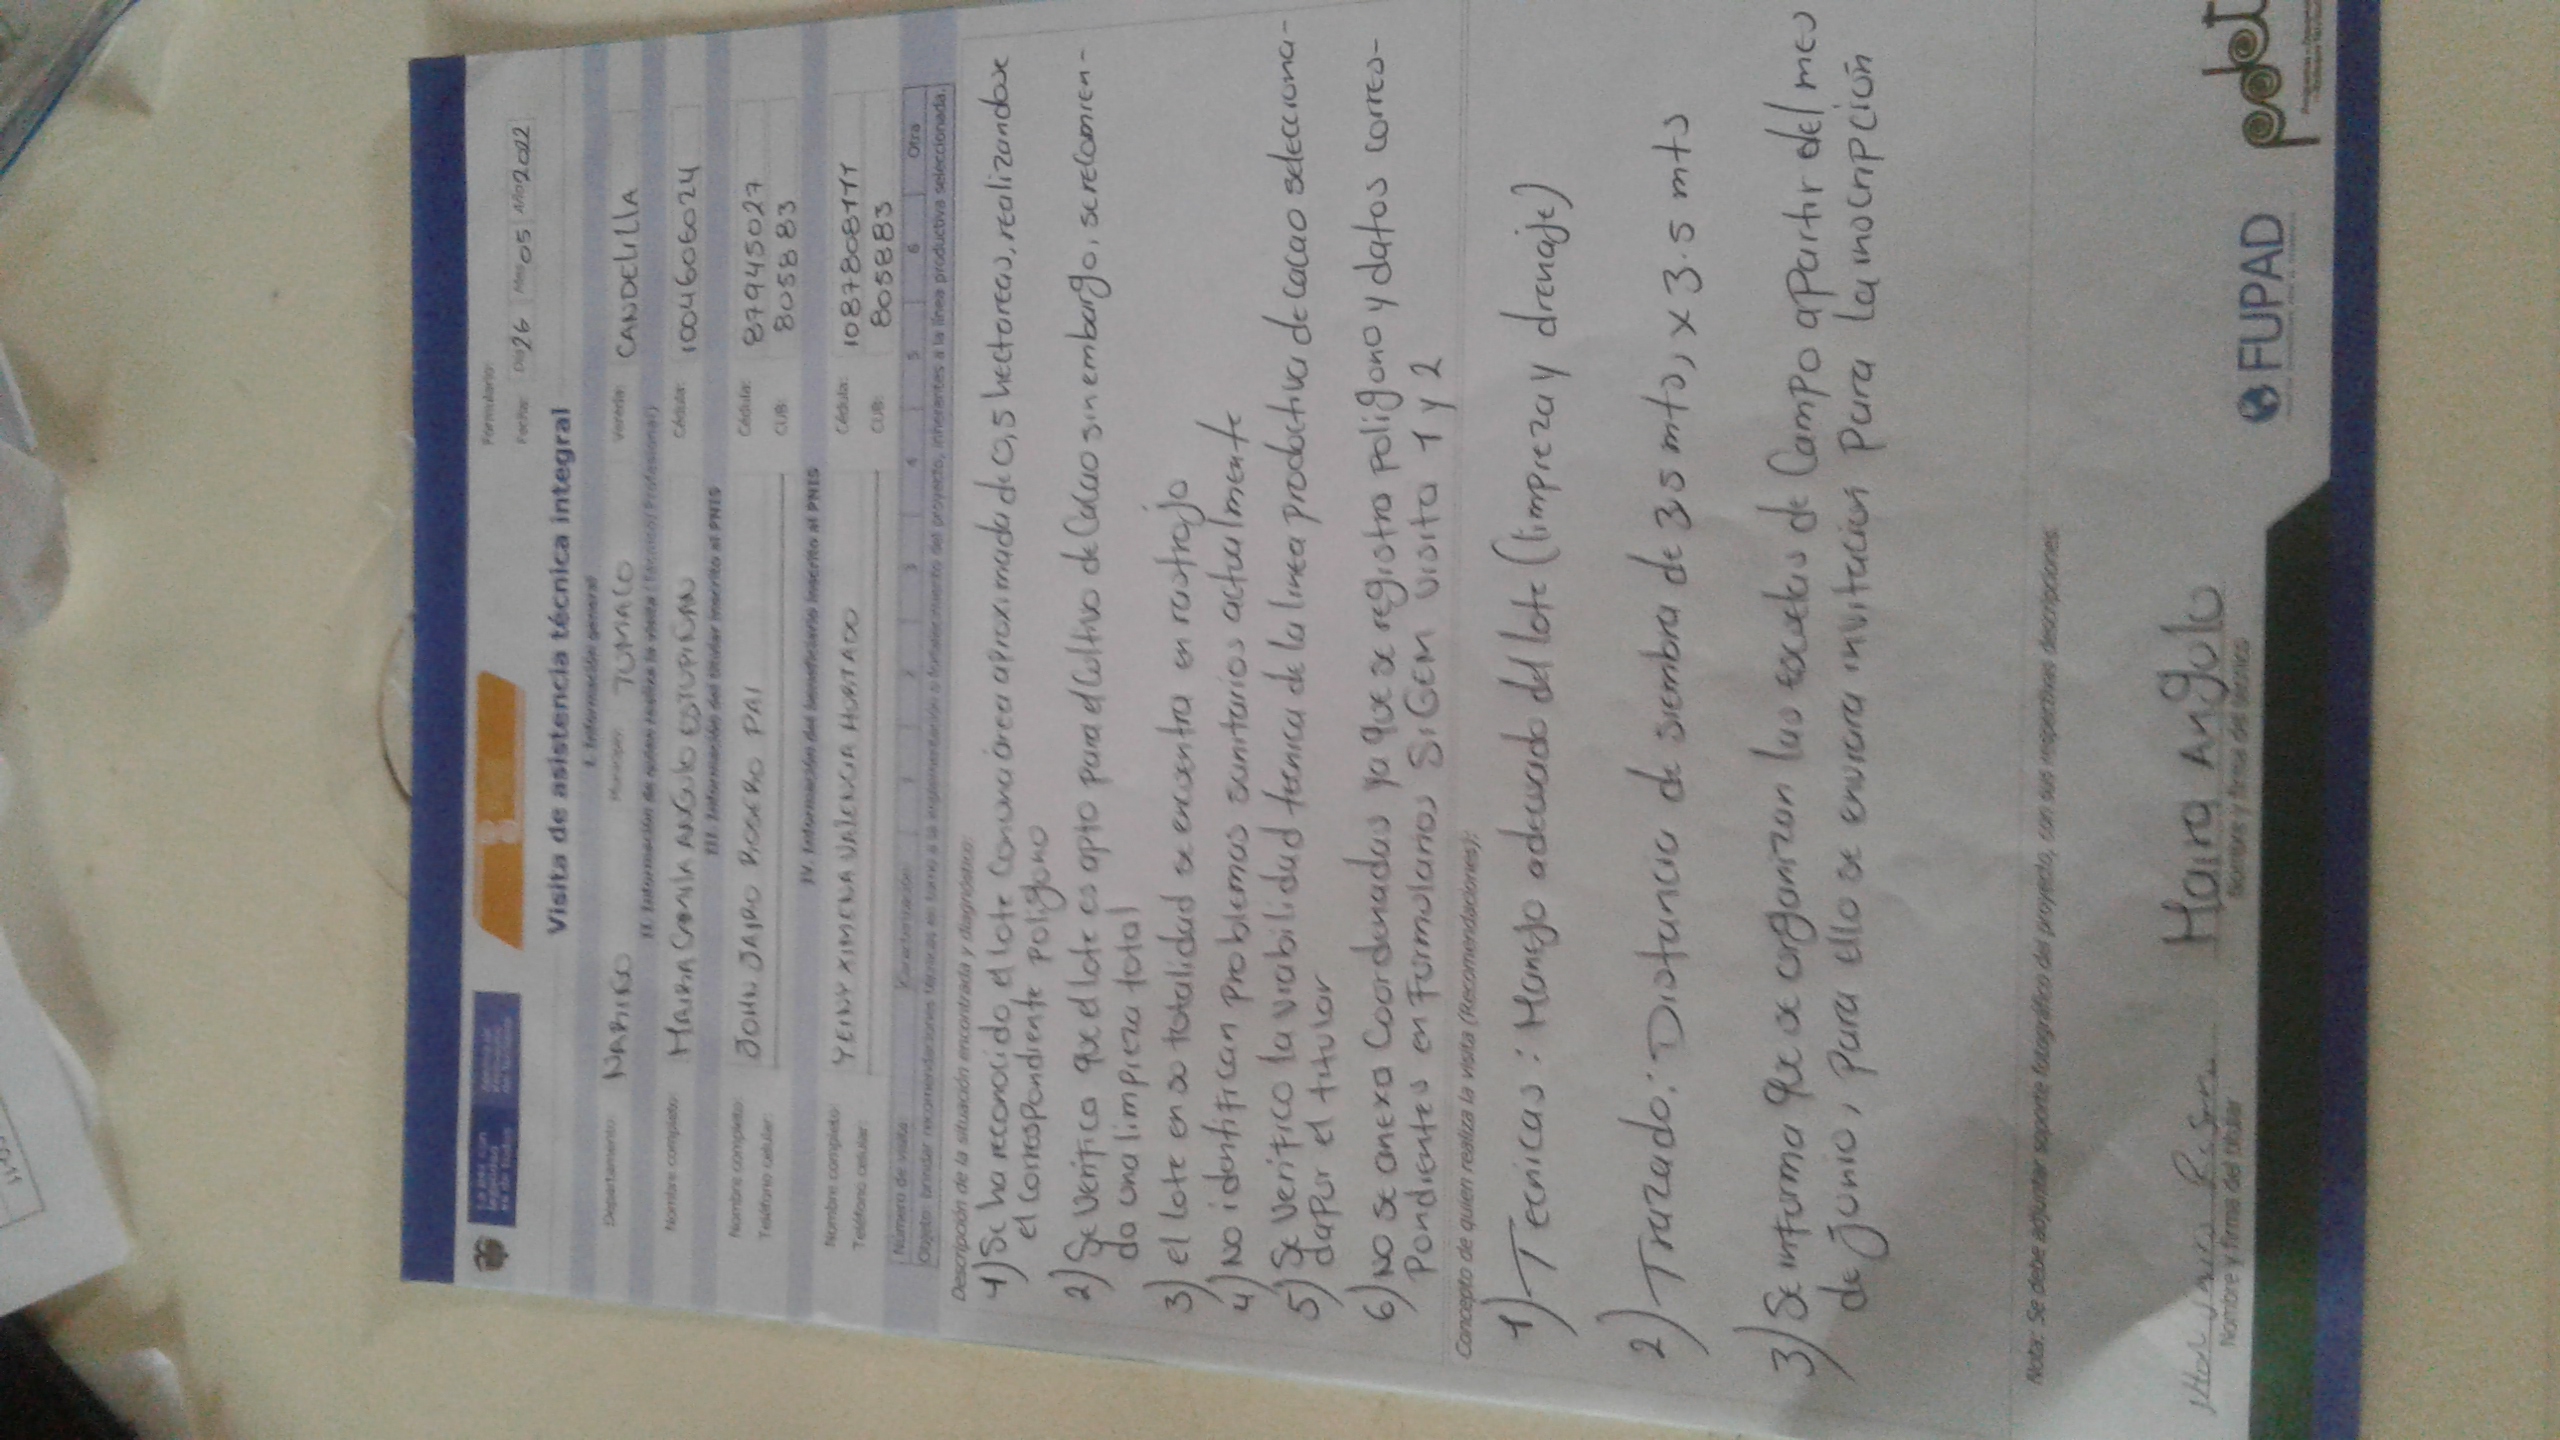 La paz con legalidad es de todos
Formulario:
Fecha: Dia 26 Mes 05 Año 2022
Visita de asistencia técnica integral
I. Información general
Departamento: NARIÑO Municipio: TUMACO Vereda: CANDELILLA
II. Información de quien realiza la visita (Técnico/Profesional)
Nombre completo: MAIRA CAMILA ANGULO ESTUPIÑAN Cédula: 1004606024
III. Información del titular inscrito al PNIS
Nombre completo: JOHN JAIRO ROSERO PAI Cédula: 87945027
Teléfono celular: CUB: 8058883
IV. Información del beneficiario inscrito al PNIS
Nombre completo: YEINY XIMENA VALENCIA HURTADO Cédula: 1087808111
Teléfono celular: CUB: 8058883
Número de visita: Caracterización: 1 2 3 4 5 6 Otra
Objeto: brindar recomendaciones técnicas en torno a la implementación o fortalecimiento del proyecto, inherentes a la línea productiva seleccionada.
Descripción de la situación encontrada y diagnóstico:
1) Se ha reconocido el lote con una área aproximada de 0,5 hectareas, realizandose
el correspondiente poligono
2) Se verifica que el lote es apto para el cultivo de Cacao sin embargo, se recomien-
da una limpieza total
3) el lote en so totalidad se encuentra en rastrojo
4) No identifican problemas sanitarios actualmente
5) Se verifico la viabilidad tecnica de la linea productiva de Cacao selecciona-
da por el titular
6) No se anexa Coordenadas ya que se registra poligono y datos corres-
pondientes en Formularios SIGEM visita 1 y 2
Concepto de quien realiza la visita (Recomendaciones):
1) Tecnicas: Manejo adecuado del lote (limpreza y drenaje)
2) Trazado: Distancia de siembra de 3.5 mts, x 3.5 mts
3) Se informa que se organizan las escuelas de Campo apartir del mes
de junio, para ello se enviara invitacion para la inscripción
Nota: Se debe adjuntar soporte fotográfico del proyecto, con sus respectivas descripciones.
Maira Angulo
Nombre y firma del titular Nombre y firma del técnico
FUPAD pdet